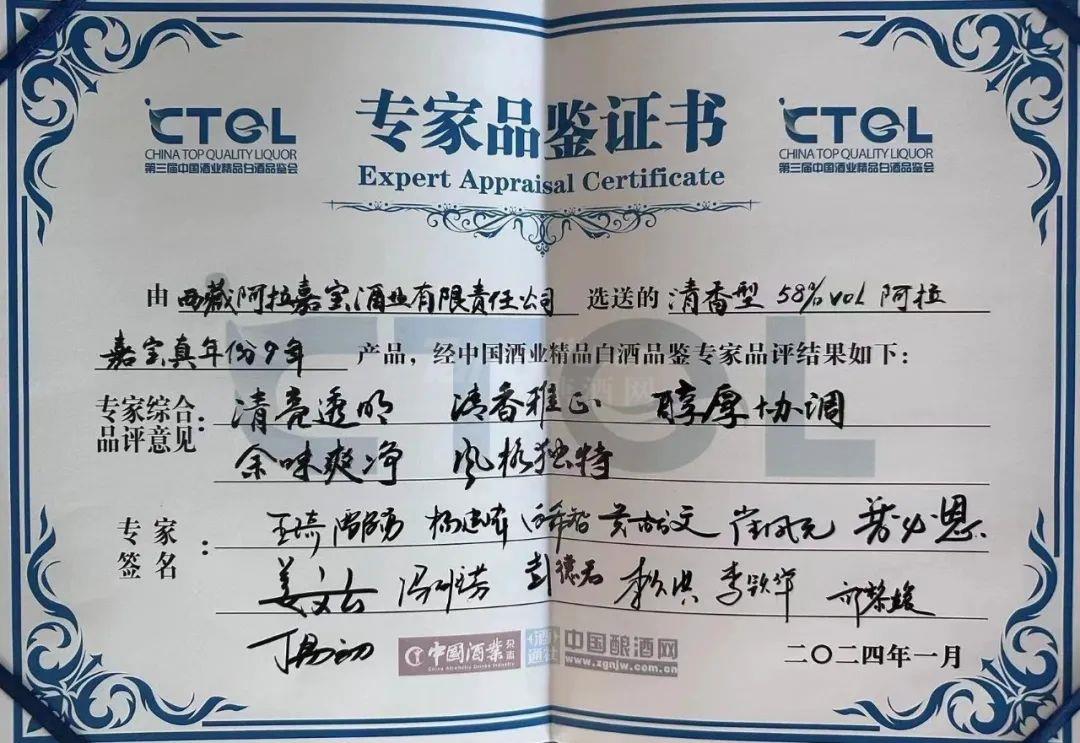 CTQL
CHINA TOP QUALITY LIQUOR
第三届中国酒业精品白酒品鉴会
专家品鉴证书
Expert Appraisal Certificate
CTQL
CHINA TOP QUALITY LIQUOR
第三届中国酒业精品白酒品鉴会
由 西藏阿拉嘉宝酒业有限责任公司 选送的 清香型 58%vol 阿拉
嘉宝真年份9年 产品，经中国酒业精品白酒品鉴专家品评结果如下：
专家综合品评意见： 清亮透明 清香雅正 醇厚协调
余味爽净 风格独特
专家签名：
姜文云 彭德君 李久洪
中国酒业杂志
China Alcoholic Drinks Industry
酒通社
中国酿酒网
www.zgnjw.com.cn
二〇二四年一月